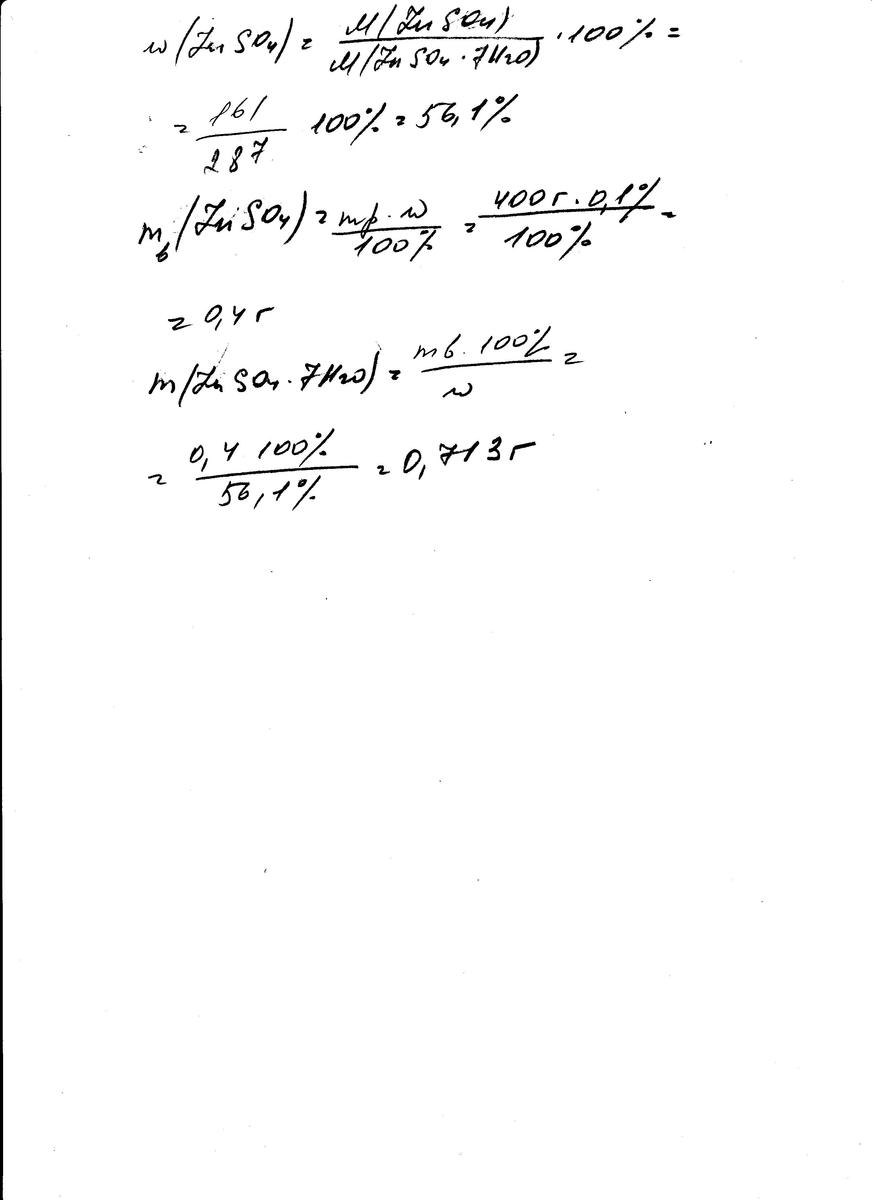 w(ZnSO₄) = M(ZnSO₄) / M(ZnSO₄ · 7H₂O) · 100% =
= 161 / 287 100% = 56,1%
mв(ZnSO₄) = mр · w / 100% = 400г · 0,1% / 100% =
= 0,4г
m(ZnSO₄ · 7H₂O) = mв · 100% / w =
= 0,4 100% / 56,1% = 0,713г